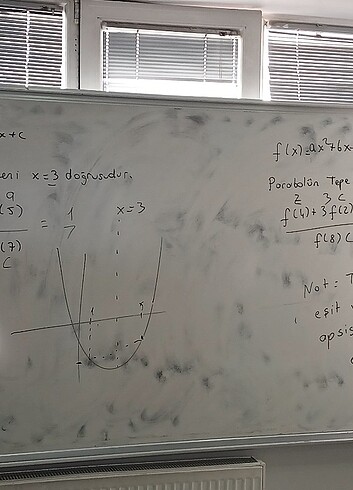 x+c
eni x=3 doğrusudur.
a
(5)
(7)
c
= 1
7
x=3
f(x)=ax²+6x
Parabolün Tepe
2 3 c
f(4)+3f(2)
f(8) c
Not:
eşit
apsis